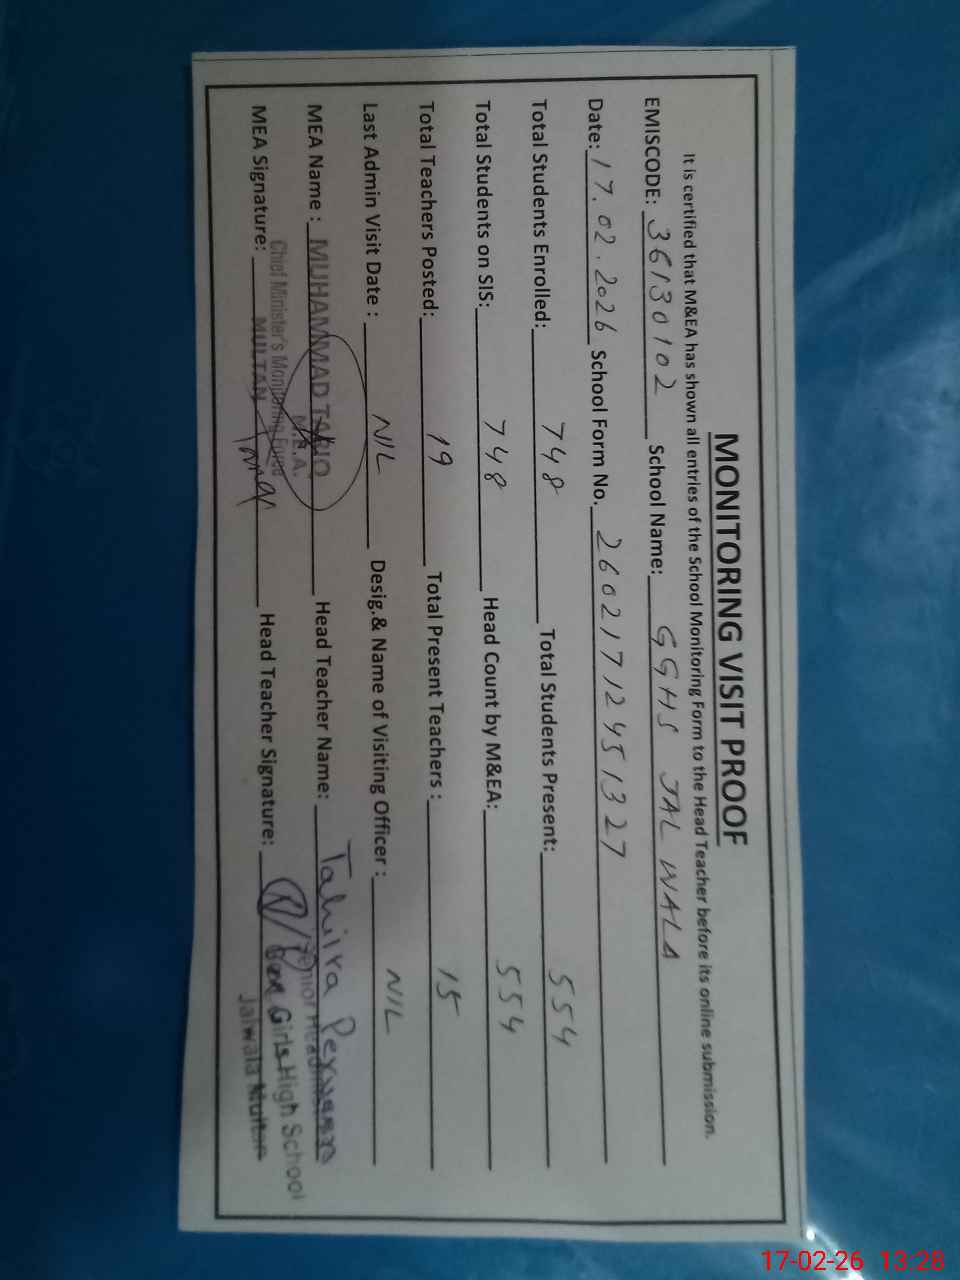 MONITORING VISIT PROOF
It is certified that M&EA has shown all entries of the School Monitoring Form to the Head Teacher before its online submission.
EMISCODE: 36130102 School Name: GGHS JALWALA
Date: 17.02.2026 School Form No. 26021712451327
Total Students Enrolled: 748 Total Students Present: 554
Total Students on SIS: 748 Head Count by M&EA: 554
Total Teachers Posted: 19 Total Present Teachers : 15
Last Admin Visit Date : NIL Desig.& Name of Visiting Officer : NIL
MEA Name : MUHAMMAD TARIQ Head Teacher Name: Tahira Perveen
M.E.A.
Chief Minister's Monitoring Force
MULTAN
Senior Headmistress
MEA Signature: Tariq Head Teacher Signature:
Girls High School
Jalwala Multan
17-02-26 13:28